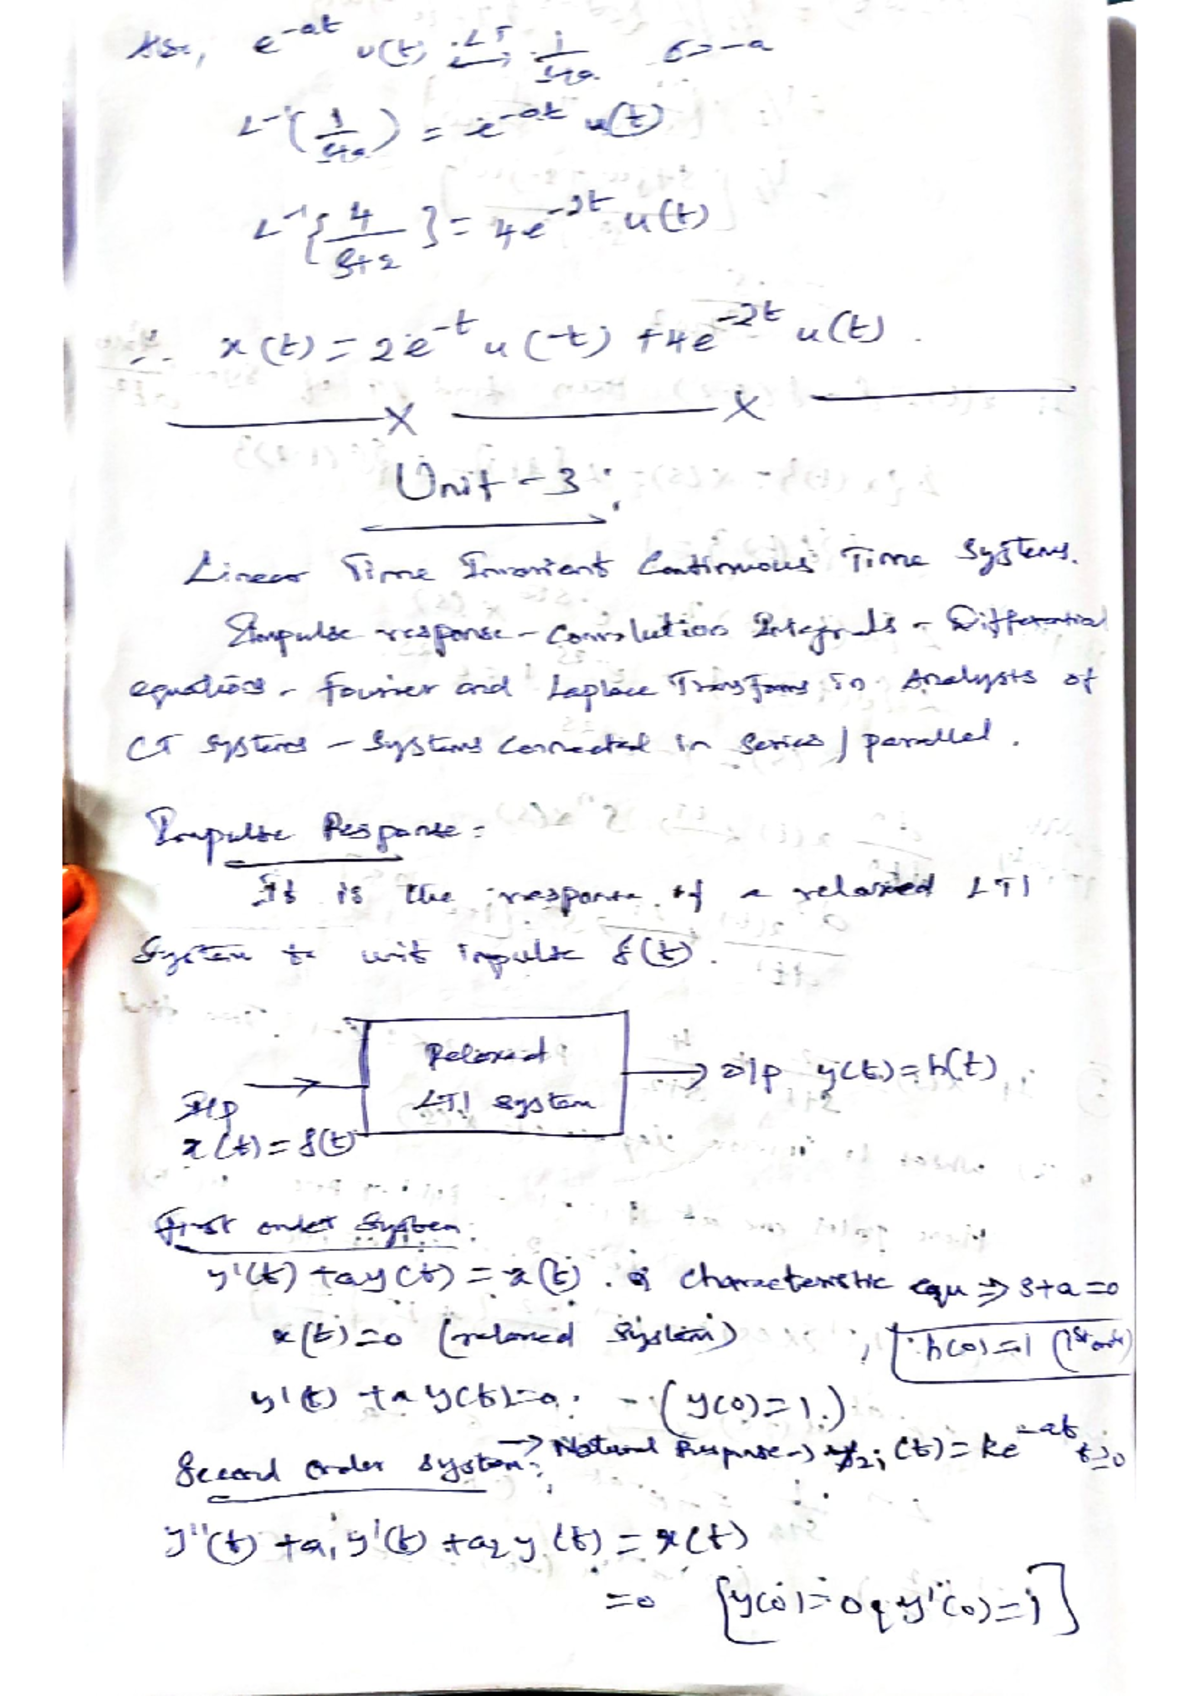 Also, e^-at u(t) <-LT-> 1/(s+a) σ>-a
L^-1(1/(s+a)) = e^-at u(t)
L^-1{4/(s+2)} = 4e^-2t u(t)
∴ x(t) = 2e^-t u(-t) + 4e^-2t u(t).
X X
Unit - 3:
Linear Time Invariant Continuous Time Systems.
Impulse response - Convolution Integrals - Differential
equations - Fourier and Laplace Transforms in Analysis of
CT Systems - Systems connected in Series / parallel.
Impulse Response:
It is the response of a relaxed LTI
System to unit impulse δ(t).
Relaxed
LTI system
I/p
x(t) = δ(t)
o/p y(t) = h(t)
First order System:
y'(t) + ay(t) = x(t). characteristic equ => s+a=0
x(t)=0 (relaxed System) ; h(0)=1 (1st order)
y'(t) + a y(t)=0. - (y(0)=1.)
Second order system: -> Natural Response -> (t) = ke^-at t≥0
y''(t) + a1 y'(t) + a2 y(t) = x(t)
=0 [y(0)=0 & y'(0)=1]